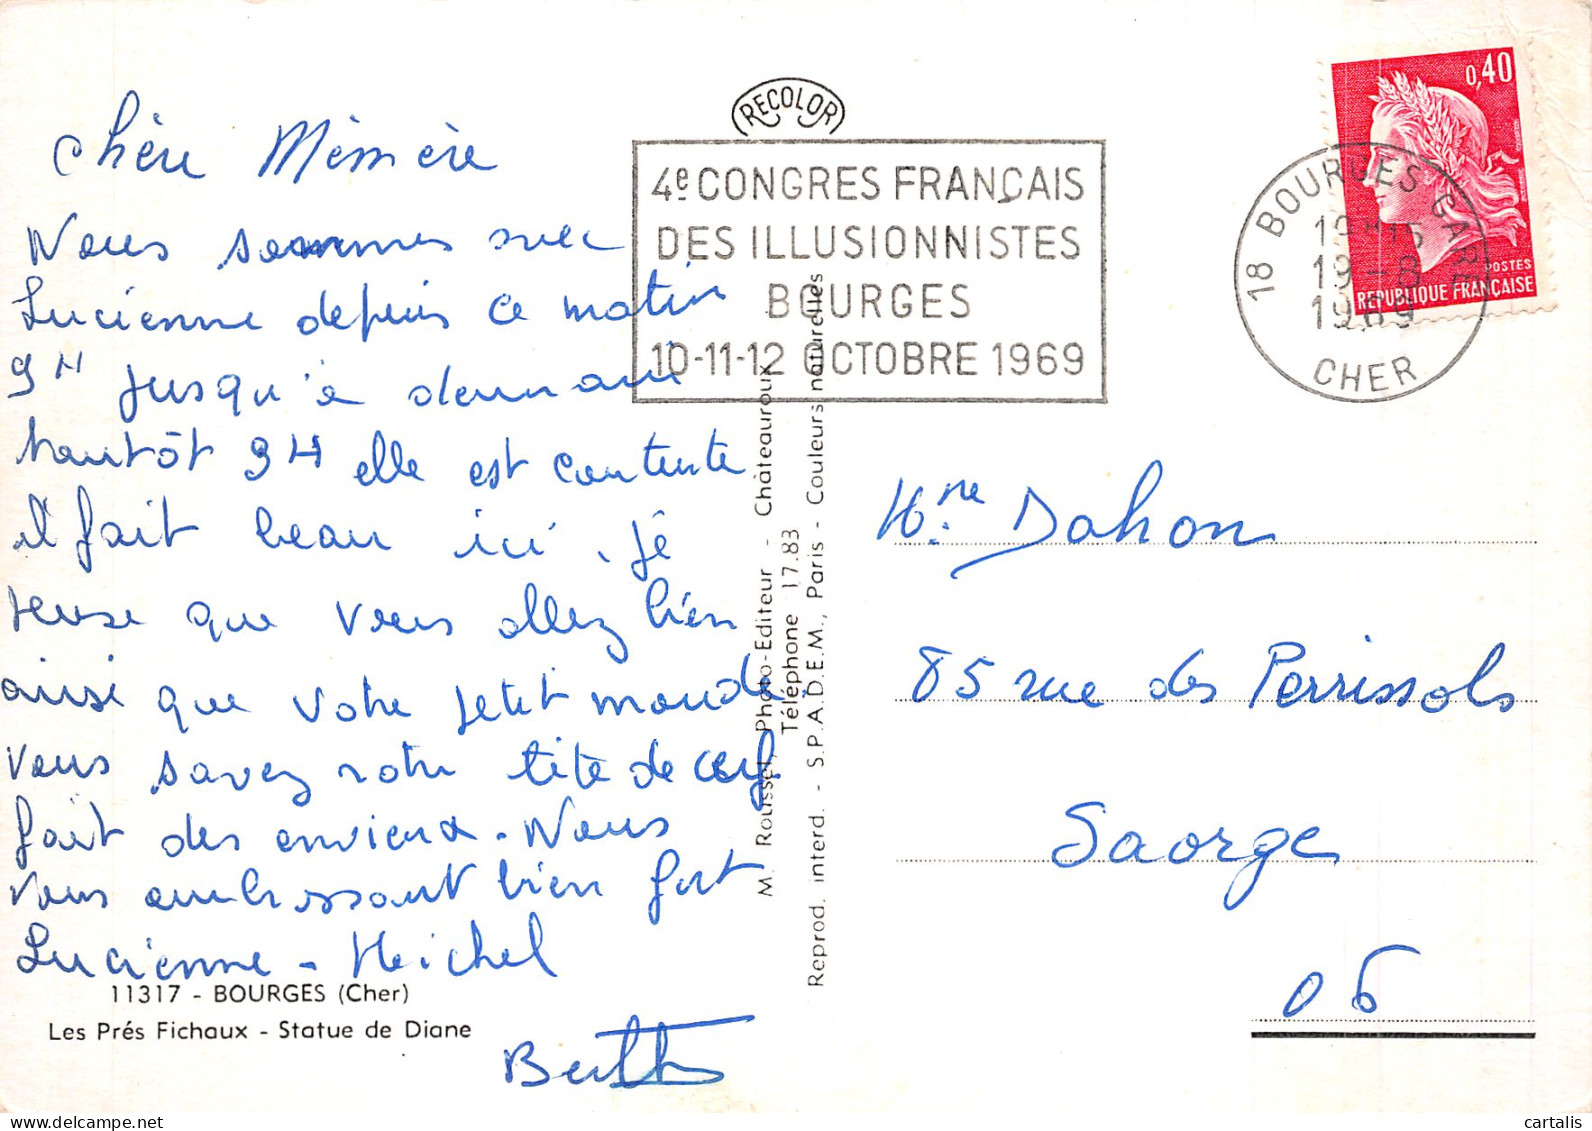 Chère Mémère
Nous sommes avec
Lucienne depuis ce matin
9H jusqu'a demain
tantôt 9H elle est contente
il fait beau ici. Je
pense que vous allez bien
ainsi que votre petit monde.
Vous savez notre tête de cerf
fait des envieux. Nous
vous embrassons bien fort
Lucienne - Michel
Berth
11317 - BOURGES (Cher)
Les Prés Fichaux - Statue de Diane
RECOLOR
4e CONGRES FRANÇAIS
DES ILLUSIONNISTES
BOURGES
10-11-12 OCTOBRE 1969
M. Roussel, Photo-Editeur - Châteauroux
Téléphone 17.83
Reprod. interd. - S.P.A.D.E.M., Paris - Couleurs naturelles
0,40
POSTES
REPUBLIQUE FRANÇAISE
18 BOURGES GARE
19-8
1969
CHER
Mme Dahon
85 rue des Perrissols
Saorge
06
delcampe.net
cartalis